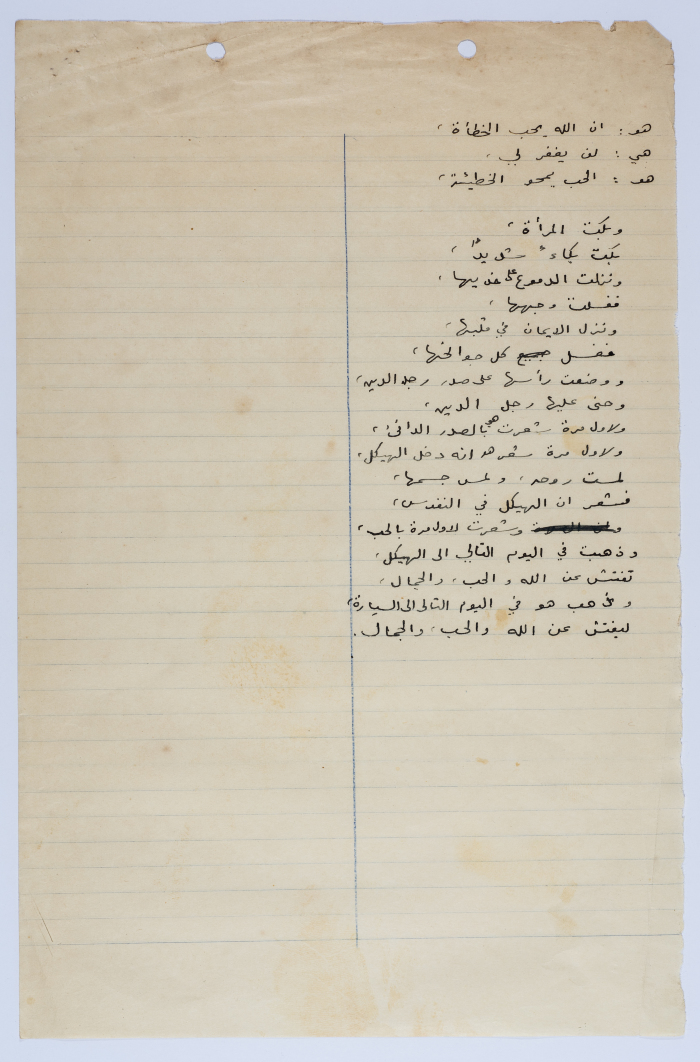 هو : ان الله يحب الخطأة ،
هي : لن يغفر لي ،
هو : الحب يمحو الخطيئة ،
وبكت المرأة ،
بكت بكاءً شديدًا ،
ونزلت الدموع على خديها ،
فغسلت وجهها ،
ونزل الايمان في قلبها ،
فغسل جميع كل جوالحها ،
ووضعت رأسها على صدر رجل الدين ،
وحنى عليها رجل الدين ،
ولاول مرة شعرت هي بالصدر الدافئ ،
ولاول مرة شعر هو انه دخل الهيكل ،
لمست روحه ، ولمس جسمها ،
فشعر ان الهيكل في النفس ،
وشعرت لاول مرة بالحب ،
وذهبت في اليوم التالي الى الهيكل ،
تفتش عن الله والحب ، والجمال ،
وذهب هو في اليوم التالي الى السيارة ،
ليفتش عن الله والحب ، والجمال .